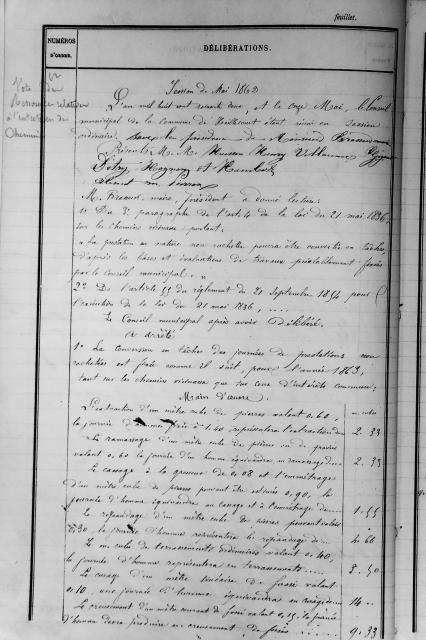 feuillet.
NUMÉROS
D'ORDRE.
DÉLIBÉRATIONS.
Session de Mai 1862
L'an mil huit cent soixante deux, et le onze Mai, le Conseil
municipal de la commune de étant réuni en session
ordinaire, sous la présidence de Monsieur
Présents M. M. Husson Henry Villaume
et
M. maire, président a donné lecture:
1° Du 3e paragraphe de l'art. 4 de la loi du 21 mai 1836,
sur les chemins vicinaux portant:
« La prestation en nature non rachetée pourra être convertie en tâches,
d'après les bases et évaluations de travaux préalablement fixées
par le Conseil municipal. »
2° De l'article 55 du règlement du 20 Septembre 1854 pour
l'exécution de la loi du 21 mai 1836, ....
Le Conseil municipal après avoir Délibéré.
a arrêté
1° La conversion en tâches des journées de prestations non
rachetées est fixée comme il suit, pour l'année 1863,
tant sur les chemins vicinaux que sur ceux d'intérêt commun;
Main d'œuvre.
L'extraction d'un mètre cube de pierres valant 0,60,
la journée d'homme fixée à 1.40 représentera l'extraction de 2. 33
Le ramassage d'un mètre cube de pierres ou de gravier
valant 0,60 la journée d'un homme équivaudra au ramassage de 2. 33
Le cassage à la grosseur de 0.08 et l'emmétrage
d'un mètre cube de pierres pouvant être estimés 0,90, la
journée d'homme équivaudra au cassage et à l'emmétrage de 1. 55
Le répandage d'un mètre cube de pierres pouvant valoir
0,30, la journée d'homme représentera le répandage de 4. 60
Le m. cube de terrassements ordinaires valant 0.40,
la journée d'homme représentera en terrassements 3. 50
Le curage d'un mètre linéaire de fossé valant
0.10, une journée d'homme équivaudra au curage de 14 ..
Le creusement d'un mètre courant de fossé valant 0,15, la journée
d'homme devra produire en creusement de fossé 9. 33